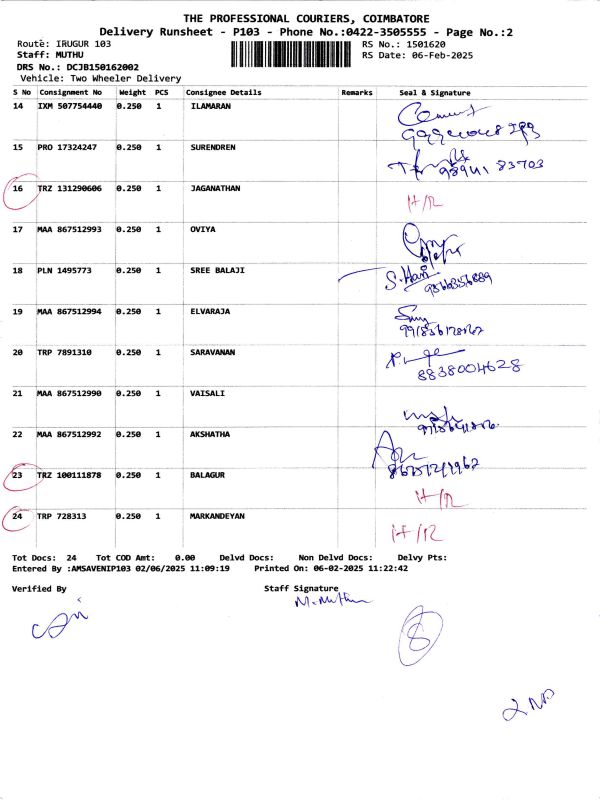 THE PROFESSIONAL COURIERS, COIMBATORE
Delivery Runsheet - P103 - Phone No.:0422-3505555 - Page No.:2
Route: IRUGUR 103 RS No.: 1501620
Staff: MUTHU RS Date: 06-Feb-2025
DRS No.: DCJB150162002
Vehicle: Two Wheeler Delivery
S No Consignment No Weight PCS Consignee Details Remarks Seal & Signature
14 IXM 507754440 0.250 1 ILAMARAN
15 PRO 17324247 0.250 1 SURENDREN
16 TRZ 131290606 0.250 1 JAGANATHAN H/R
17 MAA 867512993 0.250 1 OVIYA
18 PLN 1495773 0.250 1 SREE BALAJI S. Hari
19 MAA 867512994 0.250 1 ELVARAJA
20 TRP 7891310 0.250 1 SARAVANAN
8838004628
21 MAA 867512990 0.250 1 VAISALI
22 MAA 867512992 0.250 1 AKSHATHA
23 TRZ 100111878 0.250 1 BALAGUR H/R
24 TRP 728313 0.250 1 MARKANDEYAN H/R
Tot Docs: 24 Tot COD Amt: 0.00 Delvd Docs: Non Delvd Docs: Delvy Pts:
Entered By :AMSAVENIP103 02/06/2025 11:09:19 Printed On: 06-02-2025 11:22:42
Verified By Staff Signature
M. Muthu
8
2 NP